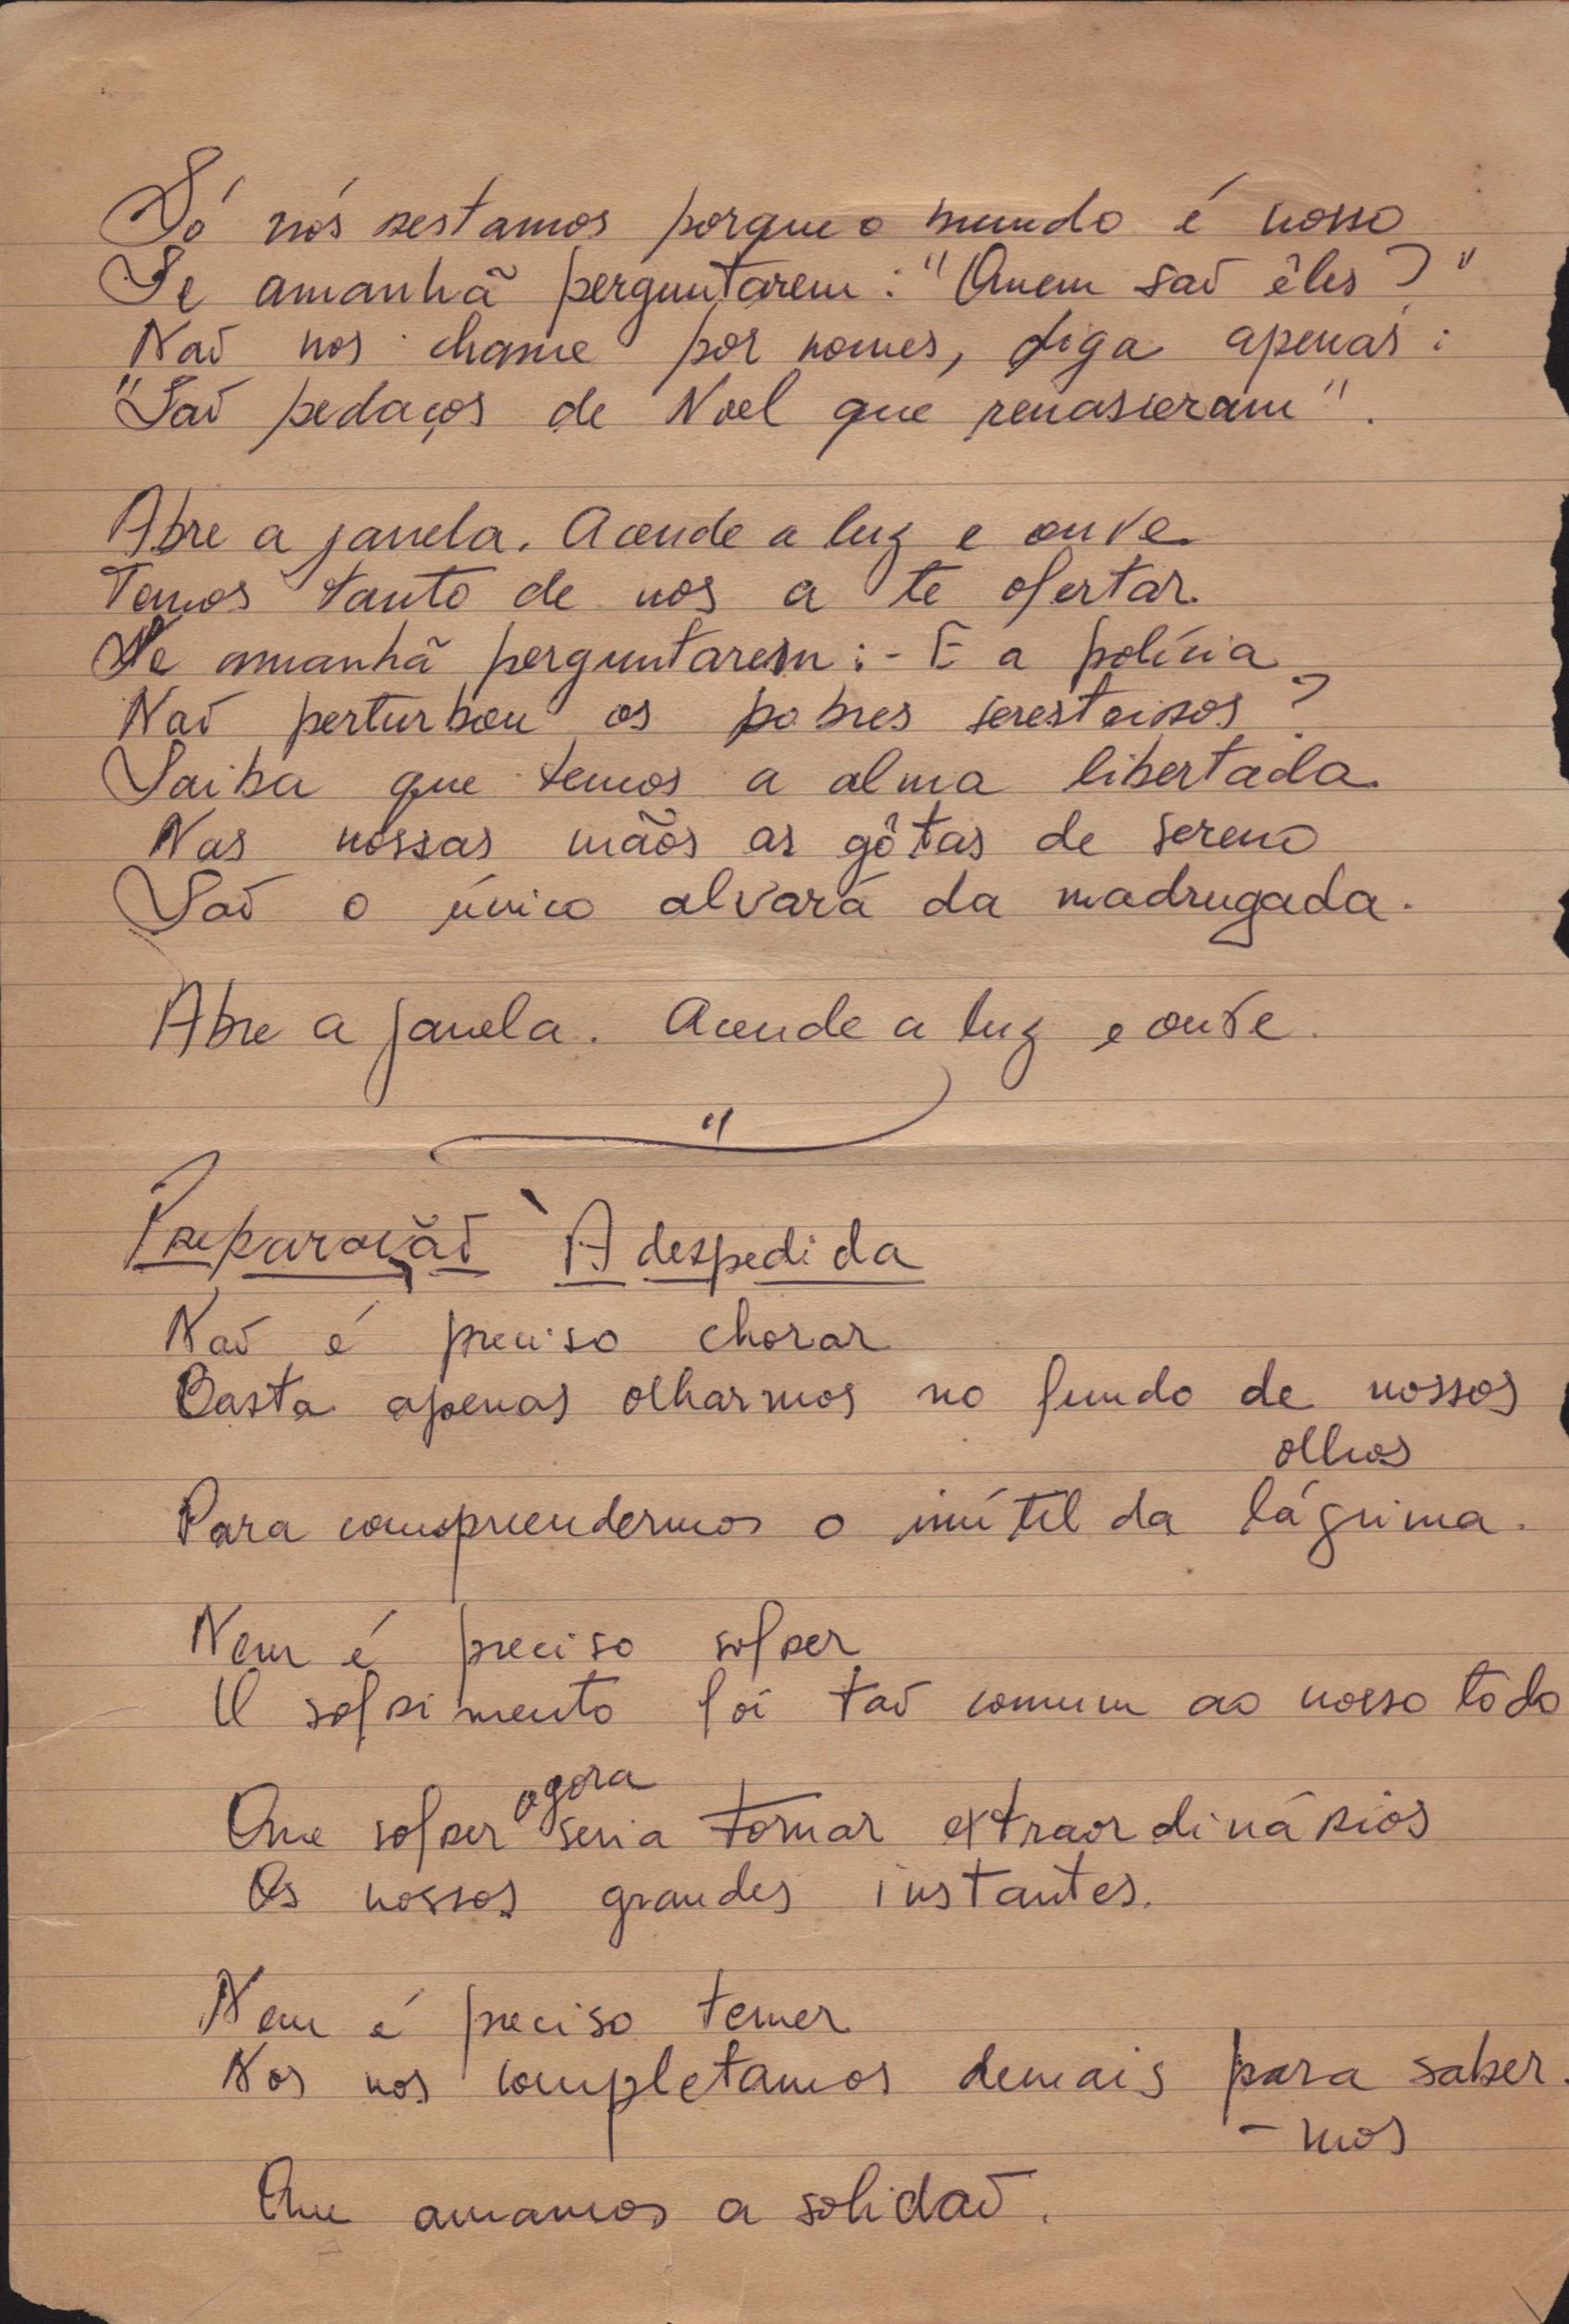 Só nós restamos porque o mundo é nosso
Se amanhã perguntarem: "Quem são êles?"
Não nos chame por nomes, diga apenas:
"São pedaços de Noel que renasceram".
Abre a janela. Acende a luz e ouve
Temos tanto de nós a te ofertar.
Se amanhã perguntarem: - E a polícia
Não perturbou os pobres seresteiros?
Saiba que temos a alma libertada.
Nas nossas mãos as gôtas de sereno
São o único alvará da madrugada.
Abre a janela. Acende a luz e ouve.
"
Preparação À despedida
Não é preciso chorar
Basta apenas olharmos no fundo de nossos
olhos
Para compreendermos o inútil da lágrima.
Nem é preciso sofrer
O sofrimento foi tão comum ao nosso todo
agora
Que sofrer seria tornar extraordinários
Os nossos grandes instantes.
Nem é preciso temer
Nos nos completamos demais para saber
-mos
Que amamos a solidão.